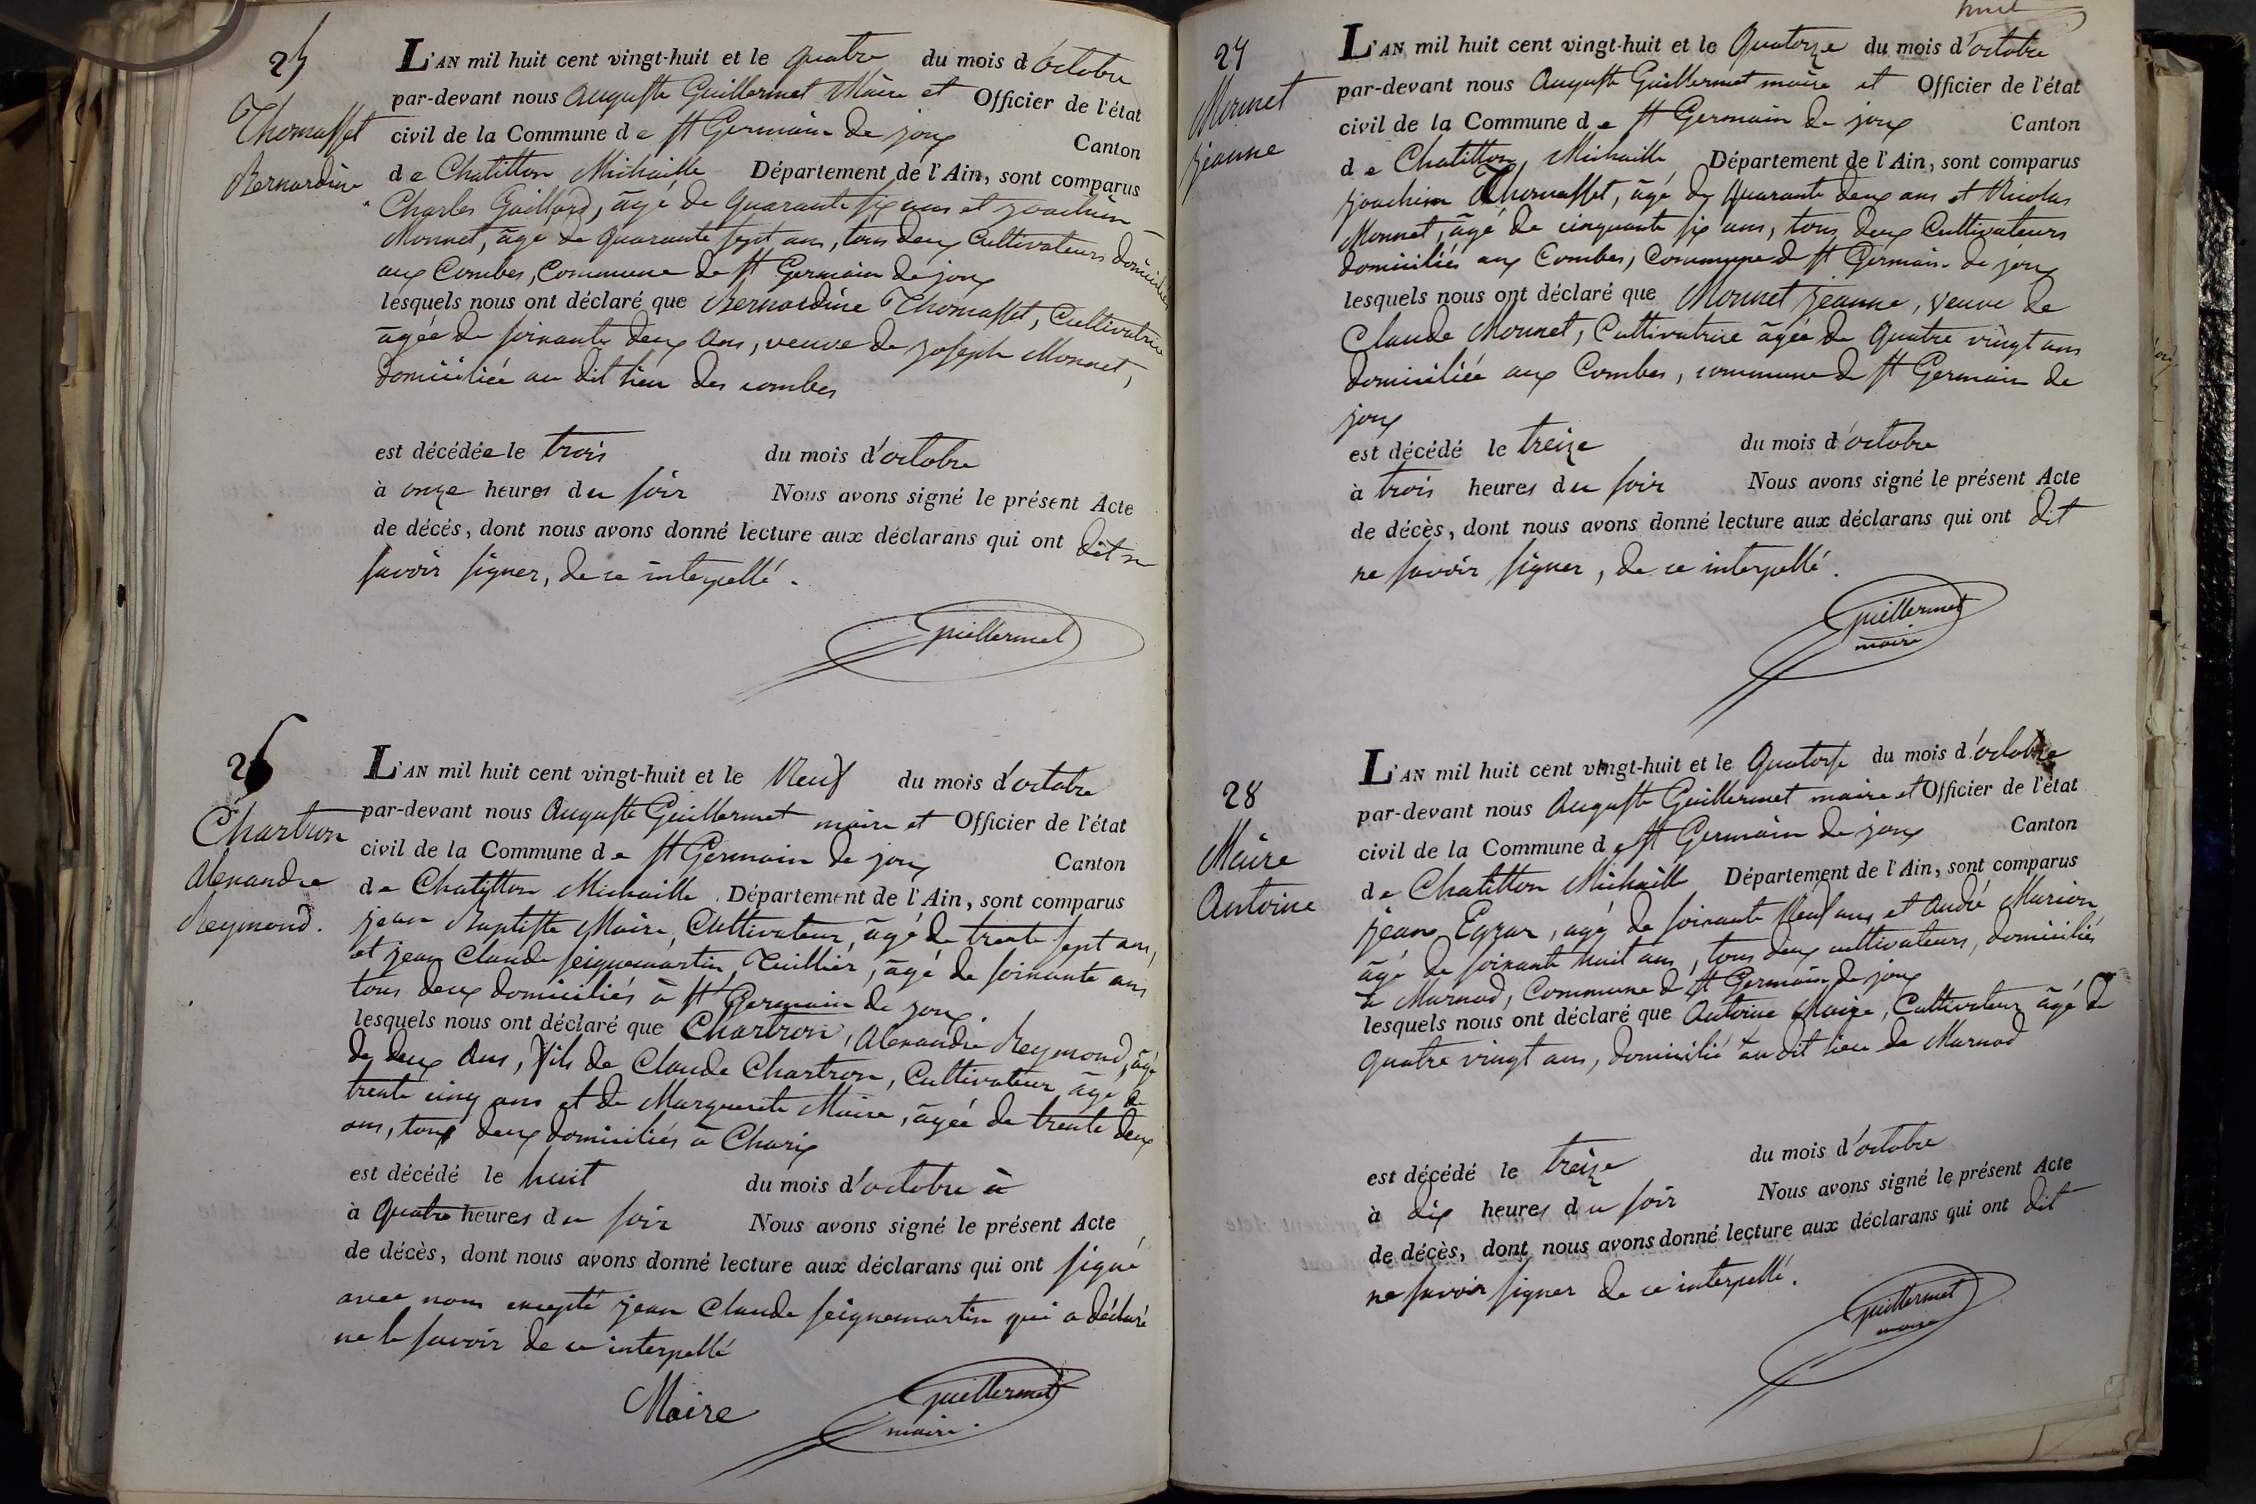 25
Thomasset
Bernardine
L'AN mil huit cent vingt-huit et le quatre du mois d'octobre
par-devant nous Auguste Guillermet Maire et Officier de l'état
civil de la Commune de st Germain de joux Canton
de Chatillon Michaille Département de l'Ain, sont comparus
Charles Gaillard, âgé de quarante six ans et joachim
Monnet, âgé de quarante sept ans, tous deux Cultivateurs domiciliés
aux Combes, Commune de st Germain de joux
lesquels nous ont déclaré que Bernardine Thomasset, Cultivatrice
âgée de soixante deux Ans, veuve de joseph Monnet,
domiciliée au dit lieu des combes
est décédée le trois du mois d'octobre
à onze heures du soir Nous avons signé le présent Acte
de décés, dont nous avons donné lecture aux déclarans qui ont dit ne
savoir signer, de ce interpellé.
Guillermet
26
Chartron
Alexandre
Reymond.
L'AN mil huit cent vingt-huit et le Neuf du mois d'octobre
par-devant nous Auguste Guillermet maire et Officier de l'état
civil de la Commune de st Germain de joux Canton
de Chatillon Michaille Département de l'Ain, sont comparus
jean Baptiste Maire, Cultivateur, âgé de trente sept ans,
et jean Claude seignemartin, Tuillier, âgé de soixante ans
tous deux domiciliés à st Germain de joux.
lesquels nous ont déclaré que Chartron, Alexandre Reymond, âgé
de deux Ans, fils de Claude Chartron, Cultivateur âgé de
trente cinq ans et de Marguerite Maire, âgée de trente deux
ans, tous deux domiciliés à Charix
est décédé le huit du mois d'octobre à
à quatre heures du soir Nous avons signé le présent Acte
de décès, dont nous avons donné lecture aux déclarans qui ont signé
avec nous excepté jean Claude seignemartin qui a déclaré
ne le savoir de ce interpellé
Maire Guillermet
maire.
27
Monnet
jeanne
L'AN mil huit cent vingt-huit et le Quatorze du mois d'octobre
par-devant nous Auguste Guillermet maire et Officier de l'état
civil de la Commune de st Germain de joux Canton
de Chatillon Michaille Département de l'Ain, sont comparus
joachim Thomasset, âgé de quarante deux ans et Nicolas
Monnet, âgé de cinquante six ans, tous deux Cultivateurs
domiciliés aux Combes, Commune de st Germain de joux
lesquels nous ont déclaré que Monnet jeanne, veuve de
Claude Monnet, Cultivatrice âgée de quatre vingt ans
domiciliée aux Combes, commune de st Germain de
joux
est décédé le treize du mois d'octobre
à trois heures du soir Nous avons signé le présent Acte
de décès, dont nous avons donné lecture aux déclarans qui ont dit
ne savoir signer, de ce interpellé.
Guillermet
maire
28
Maire
Antoine
L'AN mil huit cent vingt-huit et le Quatorse du mois d'octobre
par-devant nous Auguste Guillermet maire et Officier de l'état
civil de la Commune de st Germain de joux Canton
de Chatillon Michaille Département de l'Ain, sont comparus
jean, âgé de soixante Neuf ans et André Marion
âgé de soixante huit ans, tous deux cultivateurs, domiciliés
à Marnod, Commune de st Germain de joux
lesquels nous ont déclaré que Antoine Maire, Cultivateur âgé de
quatre vingt ans, domicilié au dit lieu de Marnod
est décédé le treize du mois d'octobre
à dix heures du soir Nous avons signé le présent Acte
de décès, dont nous avons donné lecture aux déclarans qui ont dit
ne savoir signer de ce interpellé.
Guillermet
maire